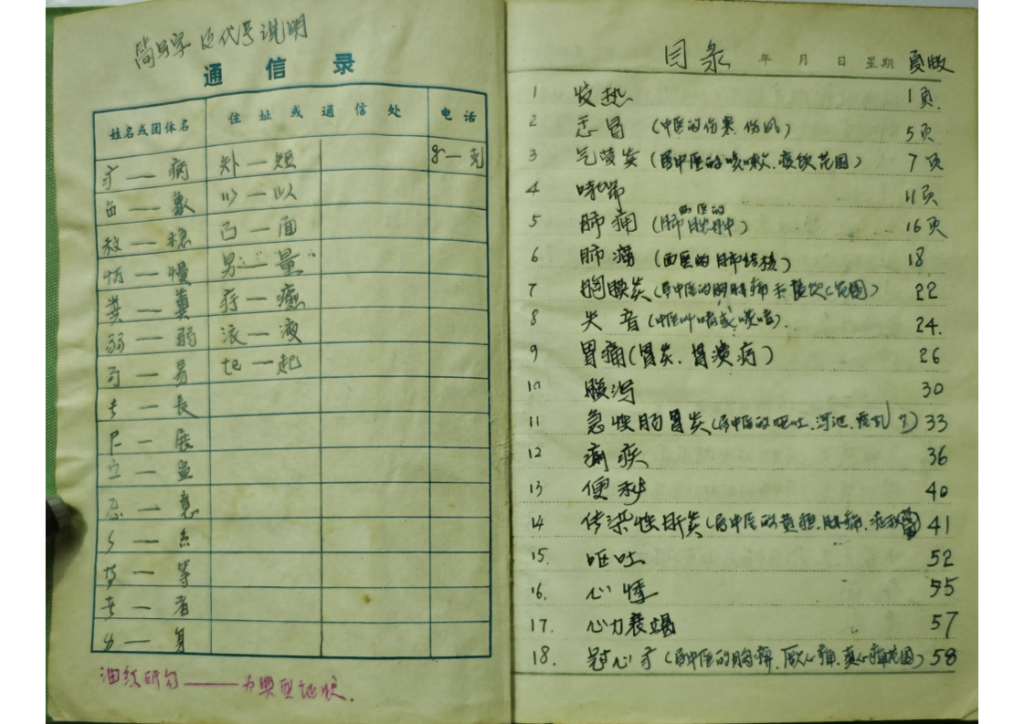 简写字 及代号说明
通信录
姓名或团体名 住址或通信处 电话
疒 — 病 — 短 g — 克
— 象 — 以
— 稳 — 面
— 懂 — 量
— 粪 — 瘾
— 弱 — 液
— 易 — 起
— 長
尸 — 展
— 意
— 系
— 等
— 者
— 身
为典型地状.
目录 年 月 日 星期 页数
1 发热 1页.
2 感冒 (中医的伤寒.伤风) 5页
3 气管炎 (属中医的咳嗽.痰饮范围) 7页
4 哮喘 11页
西医的
5 肺痈 (肺脓肿) 16页
6 肺痨 (西医的肺结核) 18
7 胸膜炎 (属中医的胸胁痛 范围) 22
8 失音 (中医叫喑或喉喑). 24.
9 胃痛 (胃炎.胃溃疡) 26
10 腹泻 30
11 急性肠胃炎 (属中医的呕吐.泻泄.霍乱) 33
12 痢疾 36
13 便秘 40
14 传染性肝炎 (属中医的黄疸.胁痛. 41
15. 呕吐 52
16. 心悸 55
17. 心力衰竭 57
18. 冠心疒 (属中医的胸痹.厥心痛.真心痛范围) 58